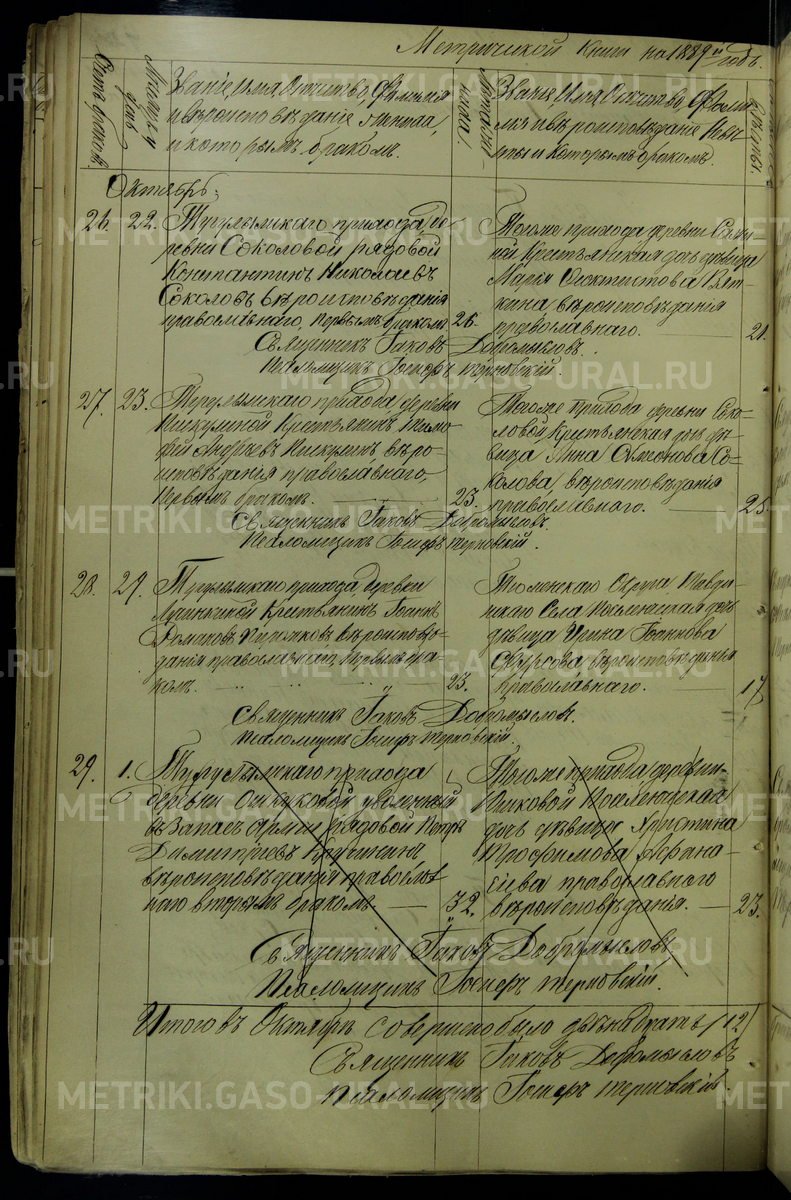 Метрической книги на 1889й годъ.
Счетъ браковъ.
Мѣсяцъ и день
Званіе, имя, отчество, фамилія
и вѣроисповѣданіе жениха,
и которымъ бракомъ.
Лѣта жениха.
Званіе, имя, отчество, фами
лія и вѣроисповѣданіе невѣ
сты и которымъ бракомъ.
Лѣта невѣсты.
Октябрь.
26. 22. Тугулымскаго прихода, де-
ревни Соколовой рядовой
Константинъ Николаевъ
Соколовъ вѣроисповѣданія
православнаго, первымъ бракомъ. 26.
Тогоже прихода деревни
Крестьянская дочь дѣвица
Марья Ѳеоктистова Вят-
кина, вѣроисповѣданія
православнаго. 21.
Священникъ Іаковъ Добромысловъ.
Псаломщикъ Іосифъ Терновскій.
27. 23. Тугулымскаго прихода, деревни
Пискулиной Крестьянинъ Тимо-
фей Андреевъ Пискулинъ вѣро-
исповѣданія православнаго,
первымъ бракомъ. 23.
Тогоже прихода деревни Соко-
ловой, Крестьянская дочь дѣ-
вица Анна Со-
колова, вѣроисповѣданія
православнаго. 25.
Священникъ Іаковъ Добромысловъ.
Псаломщикъ Іосифъ Терновскій.
28. 29. Тугулымскаго прихода, деревни
Крестьянинъ Іоаннъ
Романовъ вѣроисповѣ-
данія православнаго, первымъ бра-
комъ. 23.
Тюменскаго Округа,
скаго Села Поселенческая дочь
дѣвица Іоаннова
Фурсова, вѣроисповѣданія
православнаго. 17.
Священникъ Іаковъ Добромысловъ.
Псаломщикъ Іосифъ Терновскій.
29. 1. Тугулымскаго прихода
деревни уволенный
въ запасъ арміи рядовой Петръ
Димитріевъ
вѣроисповѣданія православ
наго вторымъ бракомъ 32.
Тогоже прихода деревни
Поселенческая
дочь дѣвица Христина
Трофимова Афана-
сіева православнаго
вѣроисповѣданія. 23.
Священникъ Іаковъ Добромысловъ
Псаломщикъ Іосифъ Терновскій.
Итого въ Октябрѣ совершено было двѣнадцать /12/
Священникъ Іаковъ Добромысловъ
Псаломщикъ Іосифъ Терновскій.
METRIKI.GASO-URAL.RU